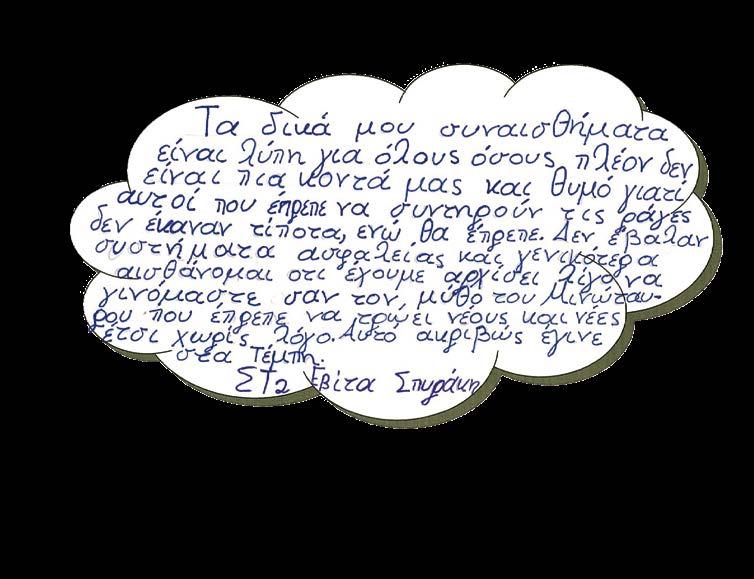 Τα δικά μου συναισθήματα
είναι λύπη για όλους όσους πλέον δεν
είναι πια κοντά μας και θυμό γιατί
αυτοί που έπρεπε να συντηρούν τις ράγες
δεν έκαναν τίποτα, ενώ θα έπρεπε. Δεν έβαλαν
συστήματα ασφαλείας και γενικότερα
αισθάνομαι οτι έχουμε αρχίσει λίγο να
γινόμαστε σαν τον μύθο του Μινώταυ-
ρου που έπρεπε να τρώει νέους και νέες
έτσι χωρίς λόγο. Αυτό ακριβώς έγινε
στα Τέμπη.
ΣΤ2 Εβίτα Σπυράκη